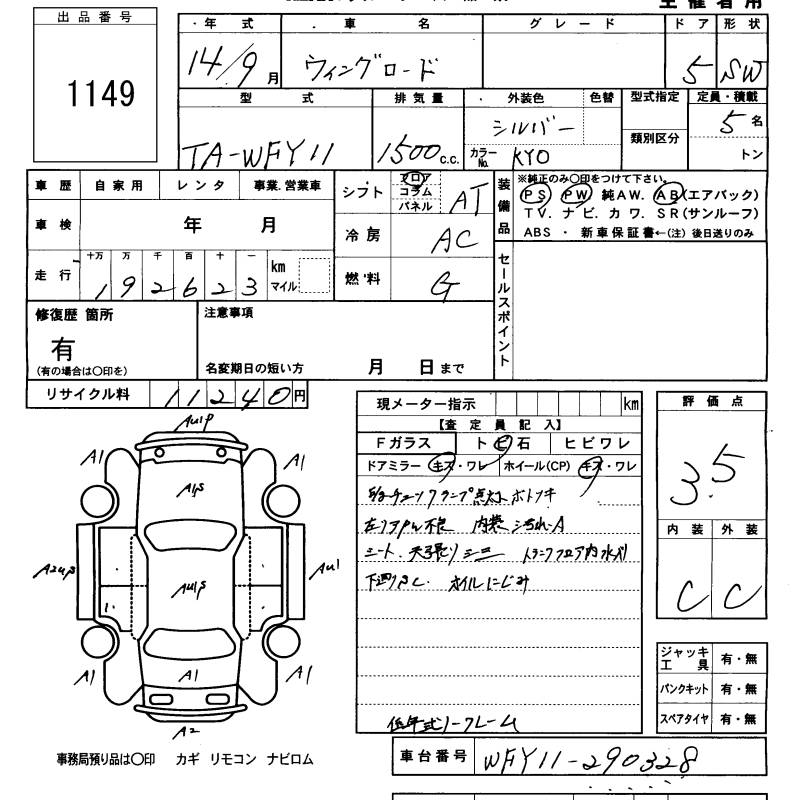 主催者用
出品番号
1149
・年 式
14/9月
・車 名
ウィングロード
グレード
ドア
5
形状
SW
型 式
TA-WFY11
排気量
1500c.c.
外装色
シルバー
色替
カラーNo. KY0
型式指定
類別区分
定員・積載
5名
トン
車歴 自家用 レンタ 事業.営業車
車検 年 月
走行
十万 万 千 百 十 一
192623
km
マイル
シフト
フロア
コラム
パネル
AT
冷房
AC
燃料
G
装備品
※純正のみ〇印をつけて下さい。
PS PW 純AW. AB(エアバック)
TV. ナビ. カワ. SR(サンルーフ)
ABS ・ 新車保証書←(注) 後日送りのみ
セールスポイント
修復歴 箇所
有
(有の場合は〇印を)
注意事項
名変期日の短い方 月 日まで
リサイクル料 11240円
現メーター指示 km
【査定員記入】
Fガラス トビ石 ヒビワレ
ドアミラー キズ・ワレ ホイール(CP) キズ・ワレ
内装汚れA
シート、天張りシミ
オイルにじみ
低年式ノークレーム
評価点
3.5
内装 外装
C C
ジャッキ工具 有・無
パンクキット 有・無
スペアタイヤ 有・無
AU1P
A1
A1
A1P
A2UP
AU1P
AU1
A1
A1
A1
A2
事務局預り品は〇印 カギ リモコン ナビロム
車台番号 WFY11-290328